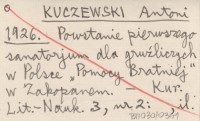 KUCZEWSKI Antoni
1926. Powstanie pierwszego
sanatorjum dla gruźliczych
w Polsce „Pomocy Bratniej"
w Zakopanem. — Kur.
Lit.-Nauk. 3, nr 2: , il.